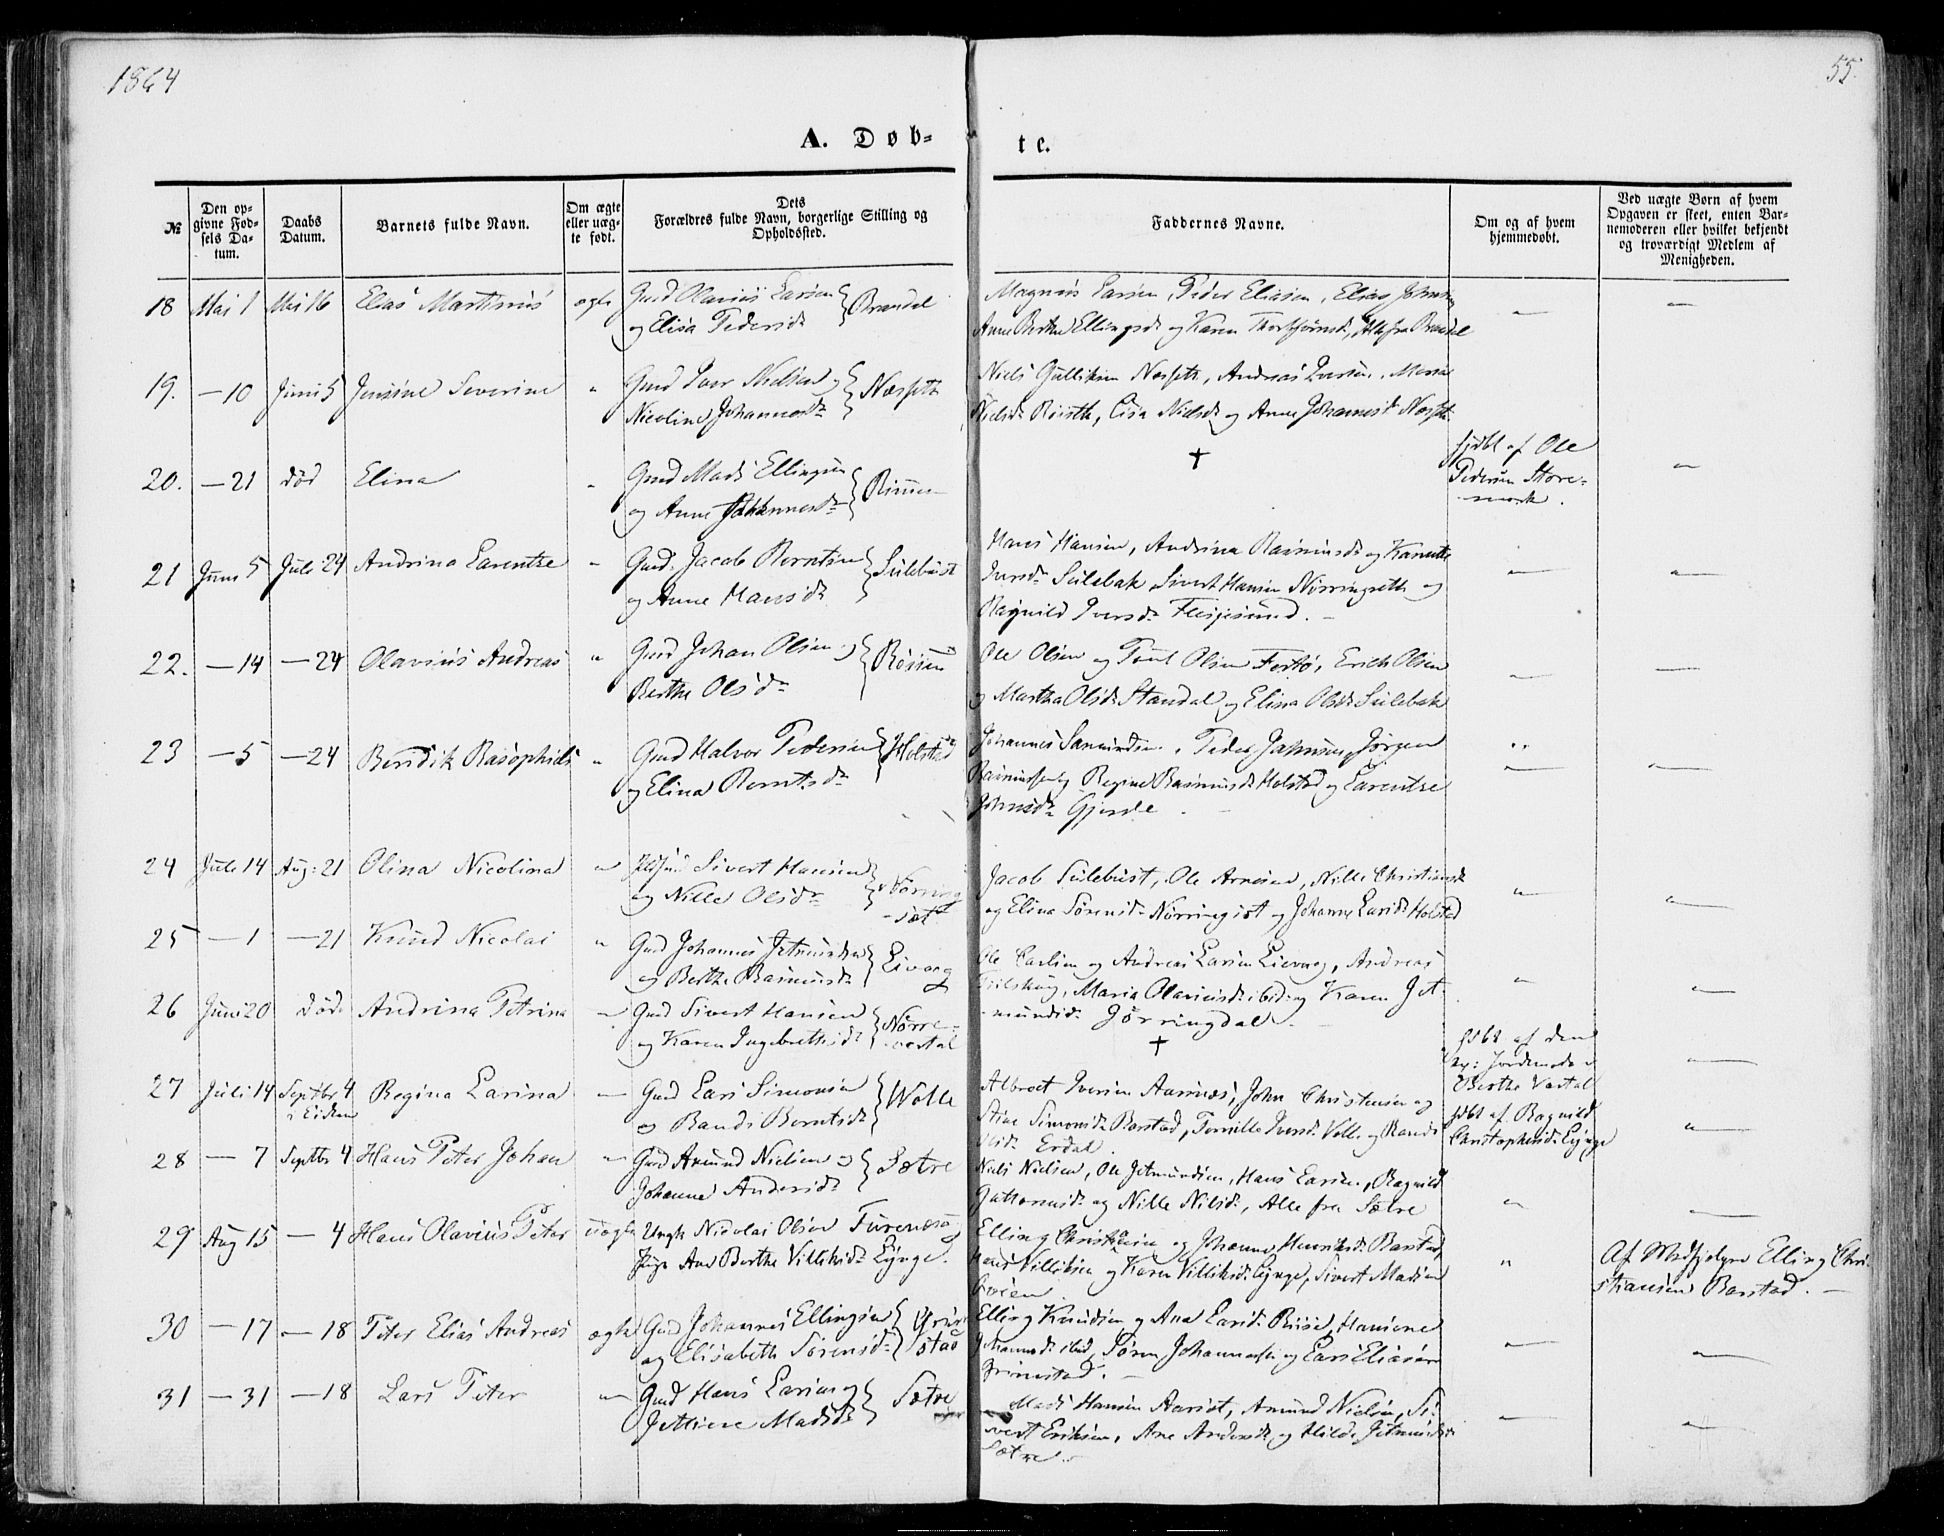 1864
55.
A. Døb-
te.
№
Den op-
givne Fød-
sels Da-
tum.
Daabs
Datum.
Barnets fulde Navn.
Om ægte
eller uæg-
te født.
Dets
Forældres fulde Navn, borgerlige Stilling og
Opholdssted.
Faddernes Navne.
Om og af hvem
hjemmedøbt.
Ved uægte Børn af hvem
Opgaven er skeet, enten Bar-
nemoderen eller hvilket bekjendt
og troværdigt Medlem af
Menigheden.
18 Mai 1 Mai 16 Elias Martinus ægte Gmd Olaviis Larsen
og Elisa Pedersd. Brandal
Magnus Larsen, Peder Eliasen, Elias Johnsen
Anne Berthe Ellingsd. og Karen Thorbjørnsd., Alle fra Brandal
19. — 10 Juni 5 Jensine Severine " Gmd Iver Nielsen og
Nicoline Johannesd. Næsseth
Niels Gulliksen Næsseth, Andreas Iversen,
Nielsd. Riseth, Lisa Nielsd. og Anne Johannesd. Næsseth
20. — 21 død Elina " Gmd Mads Ellingsen
og Anne Johannesd.
†
hjdbt af Ole
Pedersen Store-
mork.
21 Juni 5 Juli 24 Andrina Larentze " Gmd. Jacob Berntsen
og Anne Hansd. Sulebust
Hans Hansen, Andrina Rasmusd. og
Iversd. Sulebak Sivert Hansen Nørringseth og
Ragnild Iversd. Flesjesund.
22. — 14 — 24 Olavius Andreas " Gmd Johan Olsen og
Berthe Olsd.
Ole Olsen og Olsen Festø, Erich Olsen
og Martha Olsd. Standal og Elina Olsd. Sulebak
23 — 5 — 24 Bendik " Gmd Halvor Pedersen
og Elina Berntsd. Holstad
Johannes, Peder Jørgen
Rasmussen og Regine Rasmusd. Holstad og Larentze
Johnsd. Gjerde
24 Juli 14 Aug: 21 Olina Nicolina " Sivert Hansen
og Nille Olsd. Nørring
-sæt
Jacob Sulebust, Ole Arnesen, Nille Christiansd.
og Elina Sørensd. Nørringsæt og Johanne Larsd. Holstad
25 — 1 — 21 Knud Nicolai " Gmd Johannes Jetmundsen
og Berthe Rasmusd. Livaag
Ole Carlsen og Andreas Larsen Lievaag, Andreas
Maria Olaviusd. ibid. og Karen Jet-
mundsd. Jørringdal.
26 Juni 20 Død Andrina Petrina — Gmd Sivert Hansen
og Karen Ingebrethsd. Nørre-
vartdal
†
hjdbt af den
ex: Jordemoder
Berthe Vartdal
27 Juli 14 Septbr 4
i Eidem Regina Larina — Gmd Lars Simonsen
og Randi Berntsd. Wolle
Albrect Iversen Aarsnæs, John Christensen og
Stine Simonsd. Barstad, Pernille Iversd. Volle og Randi
Olsd. Erdal
hjdbt af Ragnild
Christophersd. Lynge
28 — 7 Septbr 4 Hans Peter Johan — Gmd Amund Nielsen og
Johanne Andersd. Sætre
Niels Nielsen, Ole Jetmundsen, Hans Larsen, Ragnild
Guttormsd. og Nille Nilsd., Alle fra Sætre
29 Aug 15 — 4 Hans Olavius Peter uægte Ungk Nicolai Olsen Furenæs og
Pige Ane Berthe Villiksd. Lynge.
Elling Christensen og Johanne Henriksd. Barstad,
Hans Villiksen og Karen Villiksd. Lynge, Sivert Madsen
"
Af Medhjelper Elling Chri-
stiansen Barstad.
30 — 17 — 18 Peter Elias Andreas ægte Gmd Johannes Ellingsen
og Elisabeth Sørensd. Grim-
stad
Elling Knudsen og Ana Larsd. Riise, Hansine
Johannesd. ibid, Søren Johannesen og Lars Eliasen
Grimstad.
31 — 31 — 18 Lars Peter — Gmd Hans Larsen og
Jettine Madsd. Sætre
Mads Hansen Aarsæt, Amund Nielsen, Si-
vert Eriksen, Ane Andersd. og Hilde Jetmundsd.
Sætre